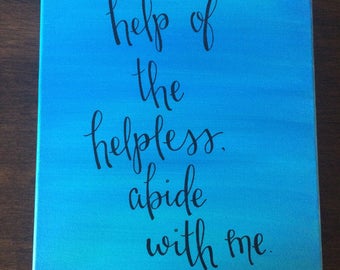 help of
the
helpless,
abide
with me.